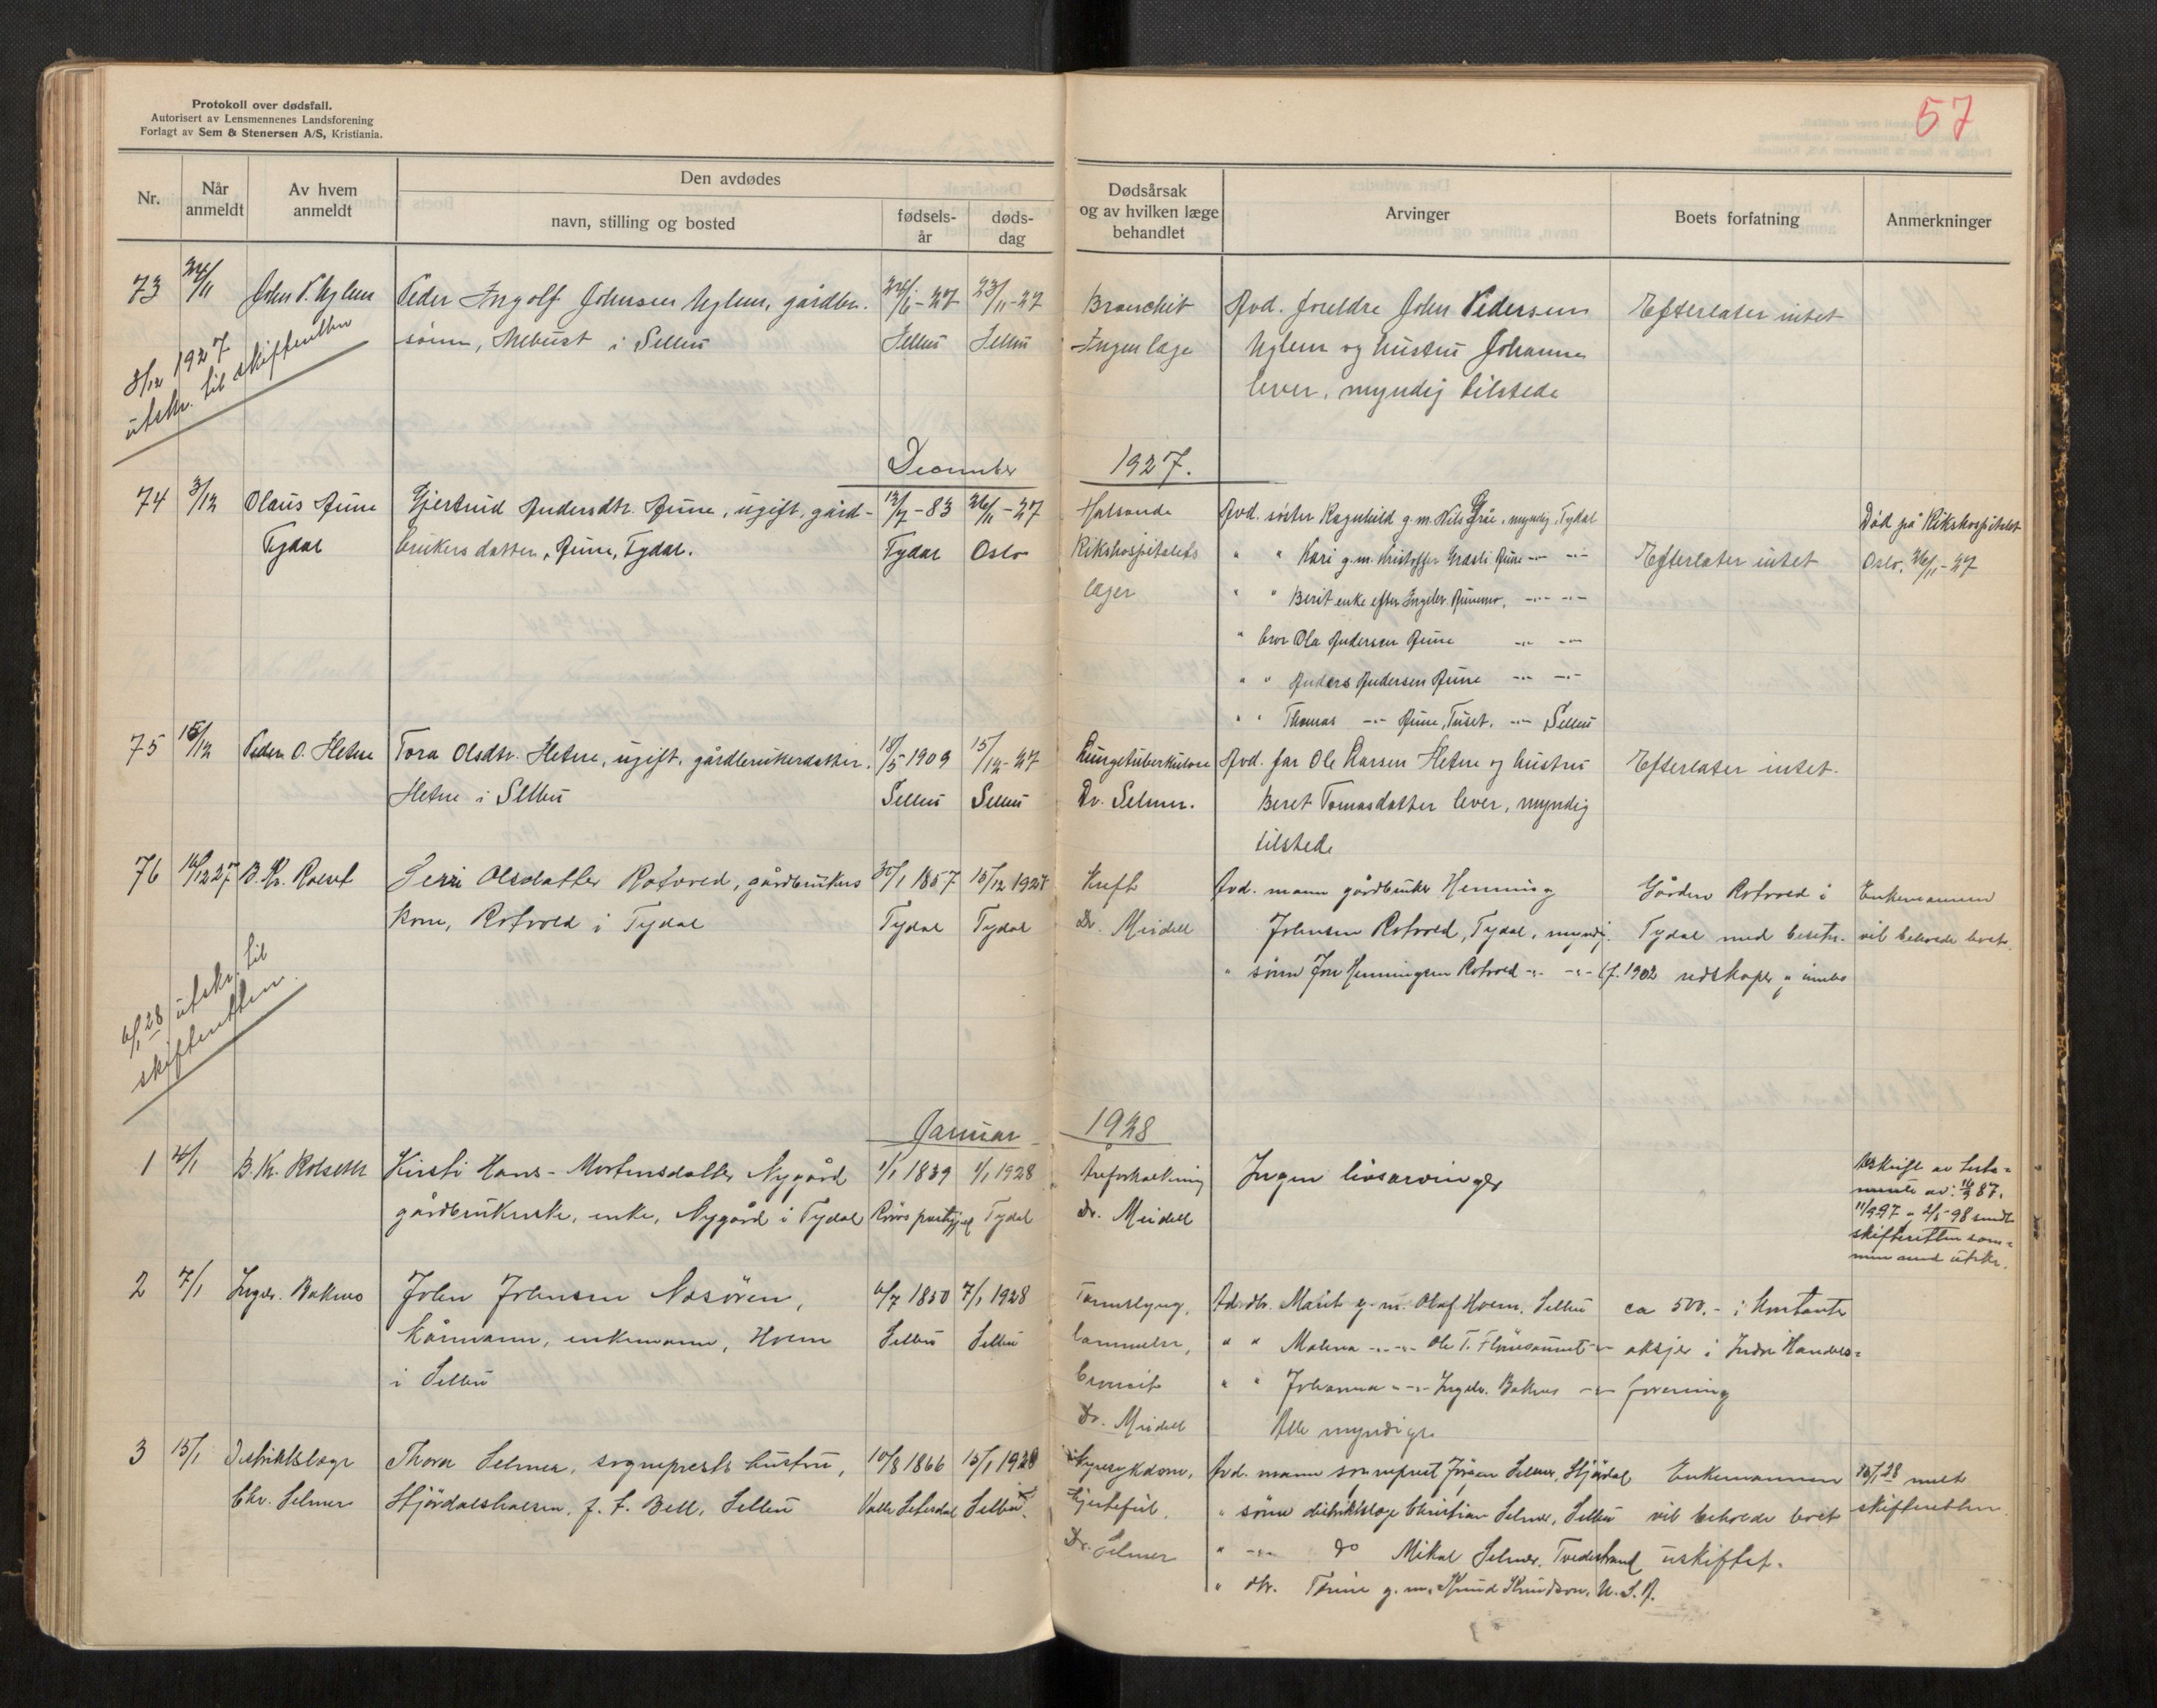 Protokoll over dødsfall.
Autorisert av Lensmennenes Landsforening
Forlagt av Sem & Stenersen A/S, Kristiania.
57
Nr.
Når anmeldt
Av hvem anmeldt
Den avdødes
navn, stilling og bosted
fødsels-år
døds-dag
Dødsårsak og av hvilken læge behandlet
Arvinger
Boets forfatning
Anmerkninger
73 24/11 John P. Uglem Peder Ingolf Johnsen Uglem, gårdbr. 24/6-27 23/11-27 Bronchit Avd. foreldre John Pedersen Efterlater intet
sønn, Mebust i Selbu Selbu Selbu Ingen læge Uglem og hustru Johanna
lever, myndig tilstede
3/12 1927
utskr. til skifteretten
December 1927.
74 3/12 Olaus Aune Gjertrud Andersdtr. Aune, ugift, gård- 12/7-83 26/11-27 Halsonde Avd. søster Ragnhild g.m. Nils Gråe, myndig, Tydal Død på Rikshospitalet
Tydal brukers datter, Aune, Tydal. Tydal Oslo Rikshospitalets " " Kari g.m. Kristoffer Græsli Aune -"- -"- Efterlater intet Oslo, 26/11-27
læger " " Berit enke efter Ingebr. Aunemo, -"- -"-
" bror Ola Andersen Aune -"- -"-
" " Anders Andersen Aune -"- -"-
" " Thomas -"- Aune, Tuset, -"- Selbu
75 15/12 Peder O. Hetne Tora Olsdtr. Hetne, ugift, gårdbrukerdatter. 18/5 1909 15/12-27 Lungetuberkulose Avd. far Ole Larsen Hetne og hustru Efterlater intet.
Hetne i Selbu Selbu Selbu Dr. Selmer. Beret Tomasdatter lever, myndig
tilstede
76 16/12 27 B. Kr. Rolset Serri Olsdatter Rotvold, gårdbrukers 30/1 1857 15/12 1927 Kreft Avd. mann gårdbruker Henning Gården Rotvold i Enkemannen
kone, Rotvold i Tydal Tydal Tydal Dr. Meidell Johnsen Rotvold, Tydal, myndig. Tydal med besetn. vil beholde boet.
" sønn Jon Henningsen Rotvold -"- -"- f. 1902 redskaper, innbo
6/1 28 utskr. til
skifteretten.
Januar 1928
1 4/1 B. Kr. Rolseth Kirsti Hans-Mortensdatter Nygård 1/1 1839 1/1 1928 Åreforkalkning Ingen livsarvinger Avskrift av testa-
gårdbrukerske, enke, Nygård i Tydal Røros prestegjel Tydal Dr. Meidell mente av: 16/3 87,
11/9 97 - 2/5 98 sendt
skifteretten sam-
men med utskr.
2 7/1 Ingebr. Bakmo John Johnsen Næsøren, 6/7 1850 7/1 1928 Avd. dtr. Marit g.m. Olaf Hoem, Selbu ca 500.- i kontante
kårmann, enkemann, Hoem Selbu Selbu lammelse, " " Malena -"- -"- Ole T. -"- aksjer i Indre Handels-
i Selbu bronsit " " Johanna -"- -"- Ingebr. Bakmo -"- forening
Dr. Meidell Alle myndige
3 15/1 Distriktslæge Thora Selmer, sogneprests hustru, 10/8 1866 15/1 1928 Nyresykdom, Avd. mann sogneprest Jörgen Selmer, Stjørdal Enkemannen 18/1 28 meldt
Chr. Selmer Stjørdalshalsen, f. Bell, Selbu Valle Setesdal Selbu. hjertefeil. " sønn distriktslæge Christian Selmer, Selbu vil beholde boet skifteretten
Dr. Selmer " -"- do Mikal Selmer, Tvedestrand uskiftet.
" dtr. g.m. Knud Knudson, U.S.A.